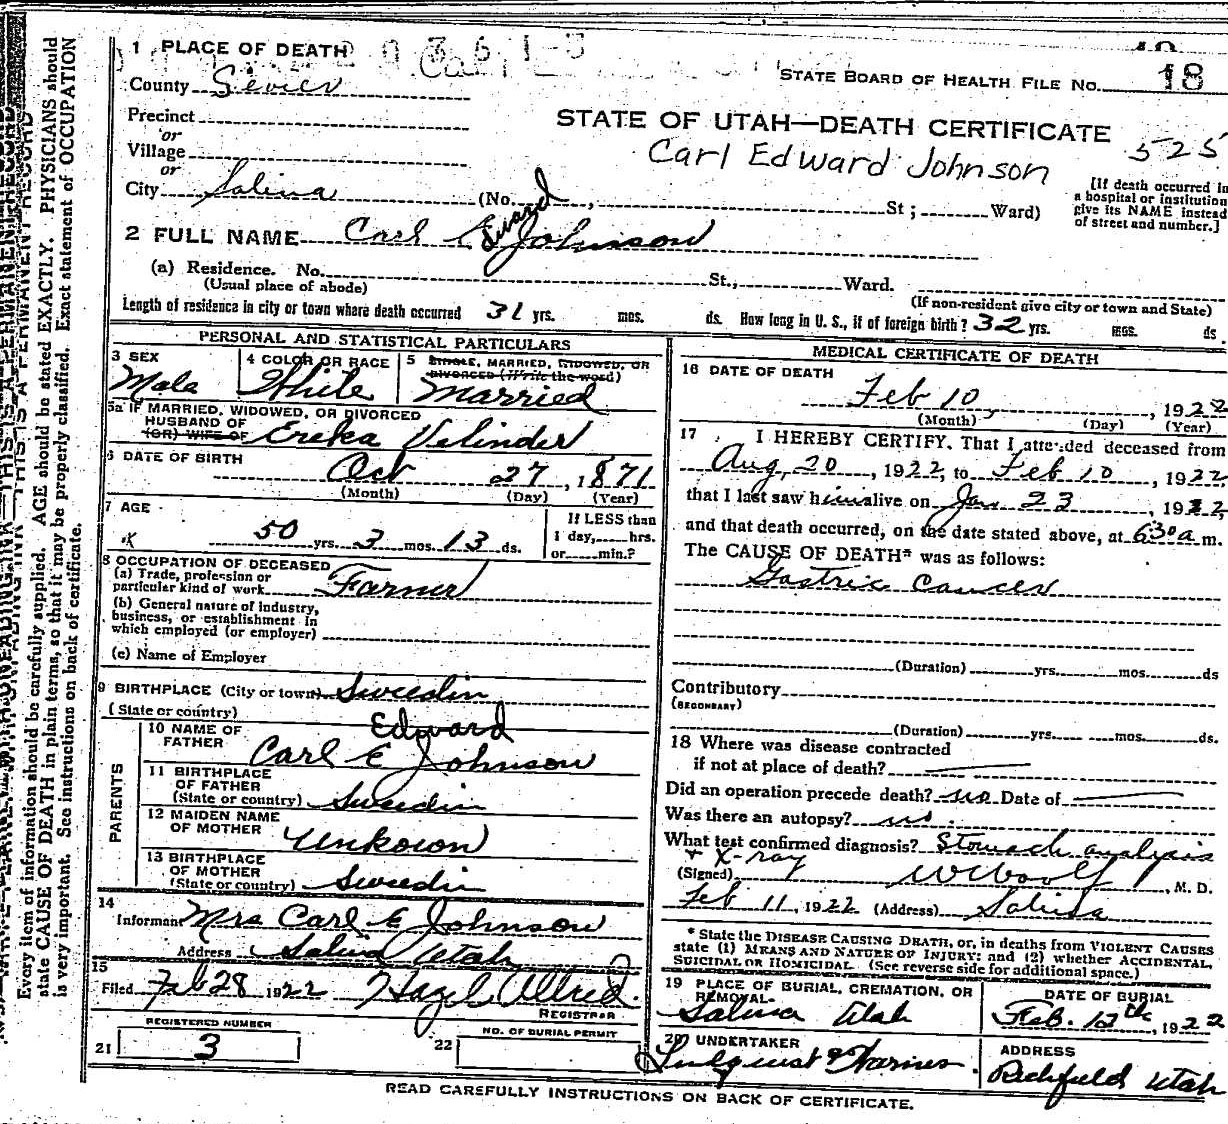 1 PLACE OF DEATH
STATE BOARD OF HEALTH FILE No. 18
County Sevier
STATE OF UTAH—DEATH CERTIFICATE
Precinct
or
Carl Edward Johnson 525
Village
or
City Salina (No. , St; Ward)
[If death occurred in
a hospital or institution
give its NAME instead
of street and number.]
2 FULL NAME Carl Edward Johnson
(a) Residence. No. St., Ward.
(Usual place of abode) (If non-resident give city or town and State)
Length of residence in city or town where death occurred 31 yrs. mos. ds. How long in U. S., if of foreign birth? 32 yrs. mos. ds.
PERSONAL AND STATISTICAL PARTICULARS
3 SEX Male
4 COLOR OR RACE White
5 SINGLE, MARRIED, WIDOWED, OR
DIVORCED (Write the word)
Married
5a IF MARRIED, WIDOWED, OR DIVORCED
HUSBAND OF
(OR) WIFE OF Ereka Velinder
6 DATE OF BIRTH
Oct 27, 1871
(Month) (Day) (Year)
7 AGE
50 yrs. 3 mos. 13 ds.
If LESS than
1 day, hrs.
or min.?
8 OCCUPATION OF DECEASED
(a) Trade, profession or
particular kind of work Farmer
(b) General nature of industry,
business, or establishment in
which employed (or employer)
(c) Name of Employer
9 BIRTHPLACE (City or town) Sweedin
(State or country)
PARENTS
10 NAME OF
FATHER Carl E Edward Johnson
11 BIRTHPLACE
OF FATHER
(State or country) Sweedin
12 MAIDEN NAME
OF MOTHER Unkown
13 BIRTHPLACE
OF MOTHER
(State or country) Sweedin
14
Informant Mrs Carl E Johnson
Address Salina Utah
15
Filed Feb 28 1922 Hazel Allred.
REGISTRAR
REGISTERED NUMBER
21 3
NO. OF BURIAL PERMIT
22
MEDICAL CERTIFICATE OF DEATH
16 DATE OF DEATH
Feb 10, 1922
(Month) (Day) (Year)
17 I HEREBY CERTIFY, That I attended deceased from
Aug, 20, 1922, to Feb 10, 1922
that I last saw him alive on Jan 23 1922,
and that death occurred, on the date stated above, at 630a m.
The CAUSE OF DEATH* was as follows:
Gastric Cancer
(Duration) yrs. mos. ds
Contributory
(SECONDARY)
(Duration) yrs. mos. ds.
18 Where was disease contracted
if not at place of death?
Did an operation precede death? no Date of
Was there an autopsy? no.
What test confirmed diagnosis? Stomach analysis
+ X-ray
(Signed) , M. D.
Feb 11, 1922 (Address) Salina
* State the DISEASE CAUSING DEATH, or, in deaths from VIOLENT CAUSES
state (1) MEANS AND NATURE OF INJURY; and (2) whether ACCIDENTAL,
SUICIDAL OR HOMICIDAL. (See reverse side for additional space.)
19 PLACE OF BURIAL, CREMATION, OR
REMOVAL
Salina Utah
DATE OF BURIAL
Feb. 12th, 1922
20 UNDERTAKER
Lindquist
ADDRESS
Richfield Utah
READ CAREFULLY INSTRUCTIONS ON BACK OF CERTIFICATE.
Every item of information should be carefully supplied. AGE should be stated EXACTLY. PHYSICIANS should
state CAUSE OF DEATH in plain terms, so that it may be properly classified. Exact statement of OCCUPATION
is very important. See instructions on back of certificate.